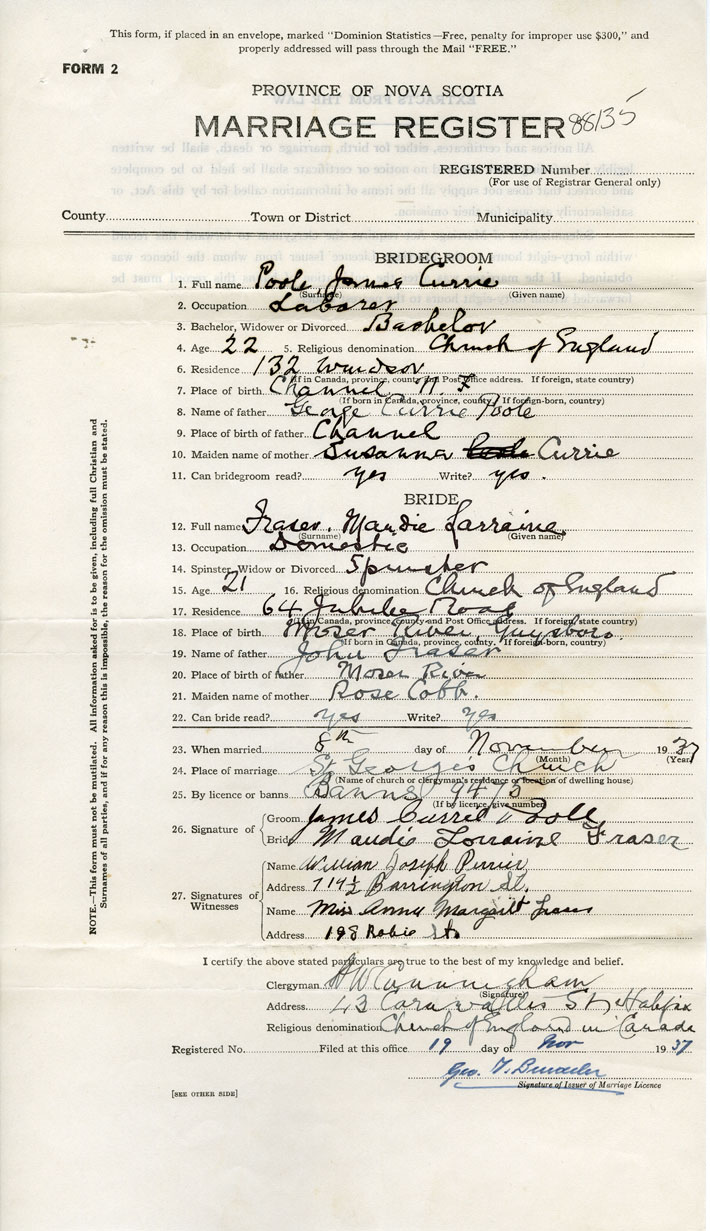 This form, if placed in an envelope, marked "Dominion Statistics—Free, penalty for improper use $300," and
properly addressed will pass through the Mail "FREE."
FORM 2
PROVINCE OF NOVA SCOTIA
MARRIAGE REGISTER 88135
REGISTERED Number
(For use of Registrar General only)
County Town or District Municipality
BRIDEGROOM
1. Full name Poole James Currie
(Surname) (Given name)
2. Occupation Laborer
3. Bachelor, Widower or Divorced Bachelor
4. Age 22 5. Religious denomination Church of England
6. Residence 132 Windsor
(If in Canada, province, county and Post Office address. If foreign, state country)
7. Place of birth Channel N. F
(If born in Canada, province, county. If foreign-born, county)
8. Name of father George Currie Poole
9. Place of birth of father Channel
10. Maiden name of mother Susanna Currie
11. Can bridegroom read? yes Write? yes.
BRIDE
12. Full name Fraser. Maudie Lorraine
(Surname) (Given name)
13. Occupation Domestic
14. Spinster, Widow or Divorced Spinster
15. Age 21 16. Religious denomination Church of England
17. Residence 64 Jubilee Road
(If in Canada, province, county and Post Office address. If foreign, state country)
18. Place of birth Moser River, Guysboro.
(If born in Canada, province, county. If foreign-born, county)
19. Name of father John Fraser
20. Place of birth of father Moser River
21. Maiden name of mother Rose Cobb.
22. Can bride read? yes Write? yes
23. When married 8th day of November 1937
(Month) (Year)
24. Place of marriage St. George's Church
(Name of church or clergyman's residence or location of dwelling house)
25. By licence or banns Banns 9475
(If by licence, give number)
26. Signature of
Groom James Currie Poole
Bride Maudie Lorraine Fraser
27. Signatures of Witnesses
Name William Joseph Perrier
Address 714½ Barrington St.
Name Miss Anna Margaret
Address 198 Robie St.
I certify the above stated particulars are true to the best of my knowledge and belief.
Clergyman H W Cunningham
(Signature)
Address 43 Cornwallis St, Halifax
Religious denomination Church of England in Canada
Registered No. Filed at this office 19 day of Nov 1937
Geo. T.
Signature of Issuer of Marriage Licence
[SEE OTHER SIDE]
NOTE.—This form must not be mutilated. All information asked for is to be given, including full Christian and
Surnames of all parties, and if for any reason this is impossible, the reason for the omission must be stated.